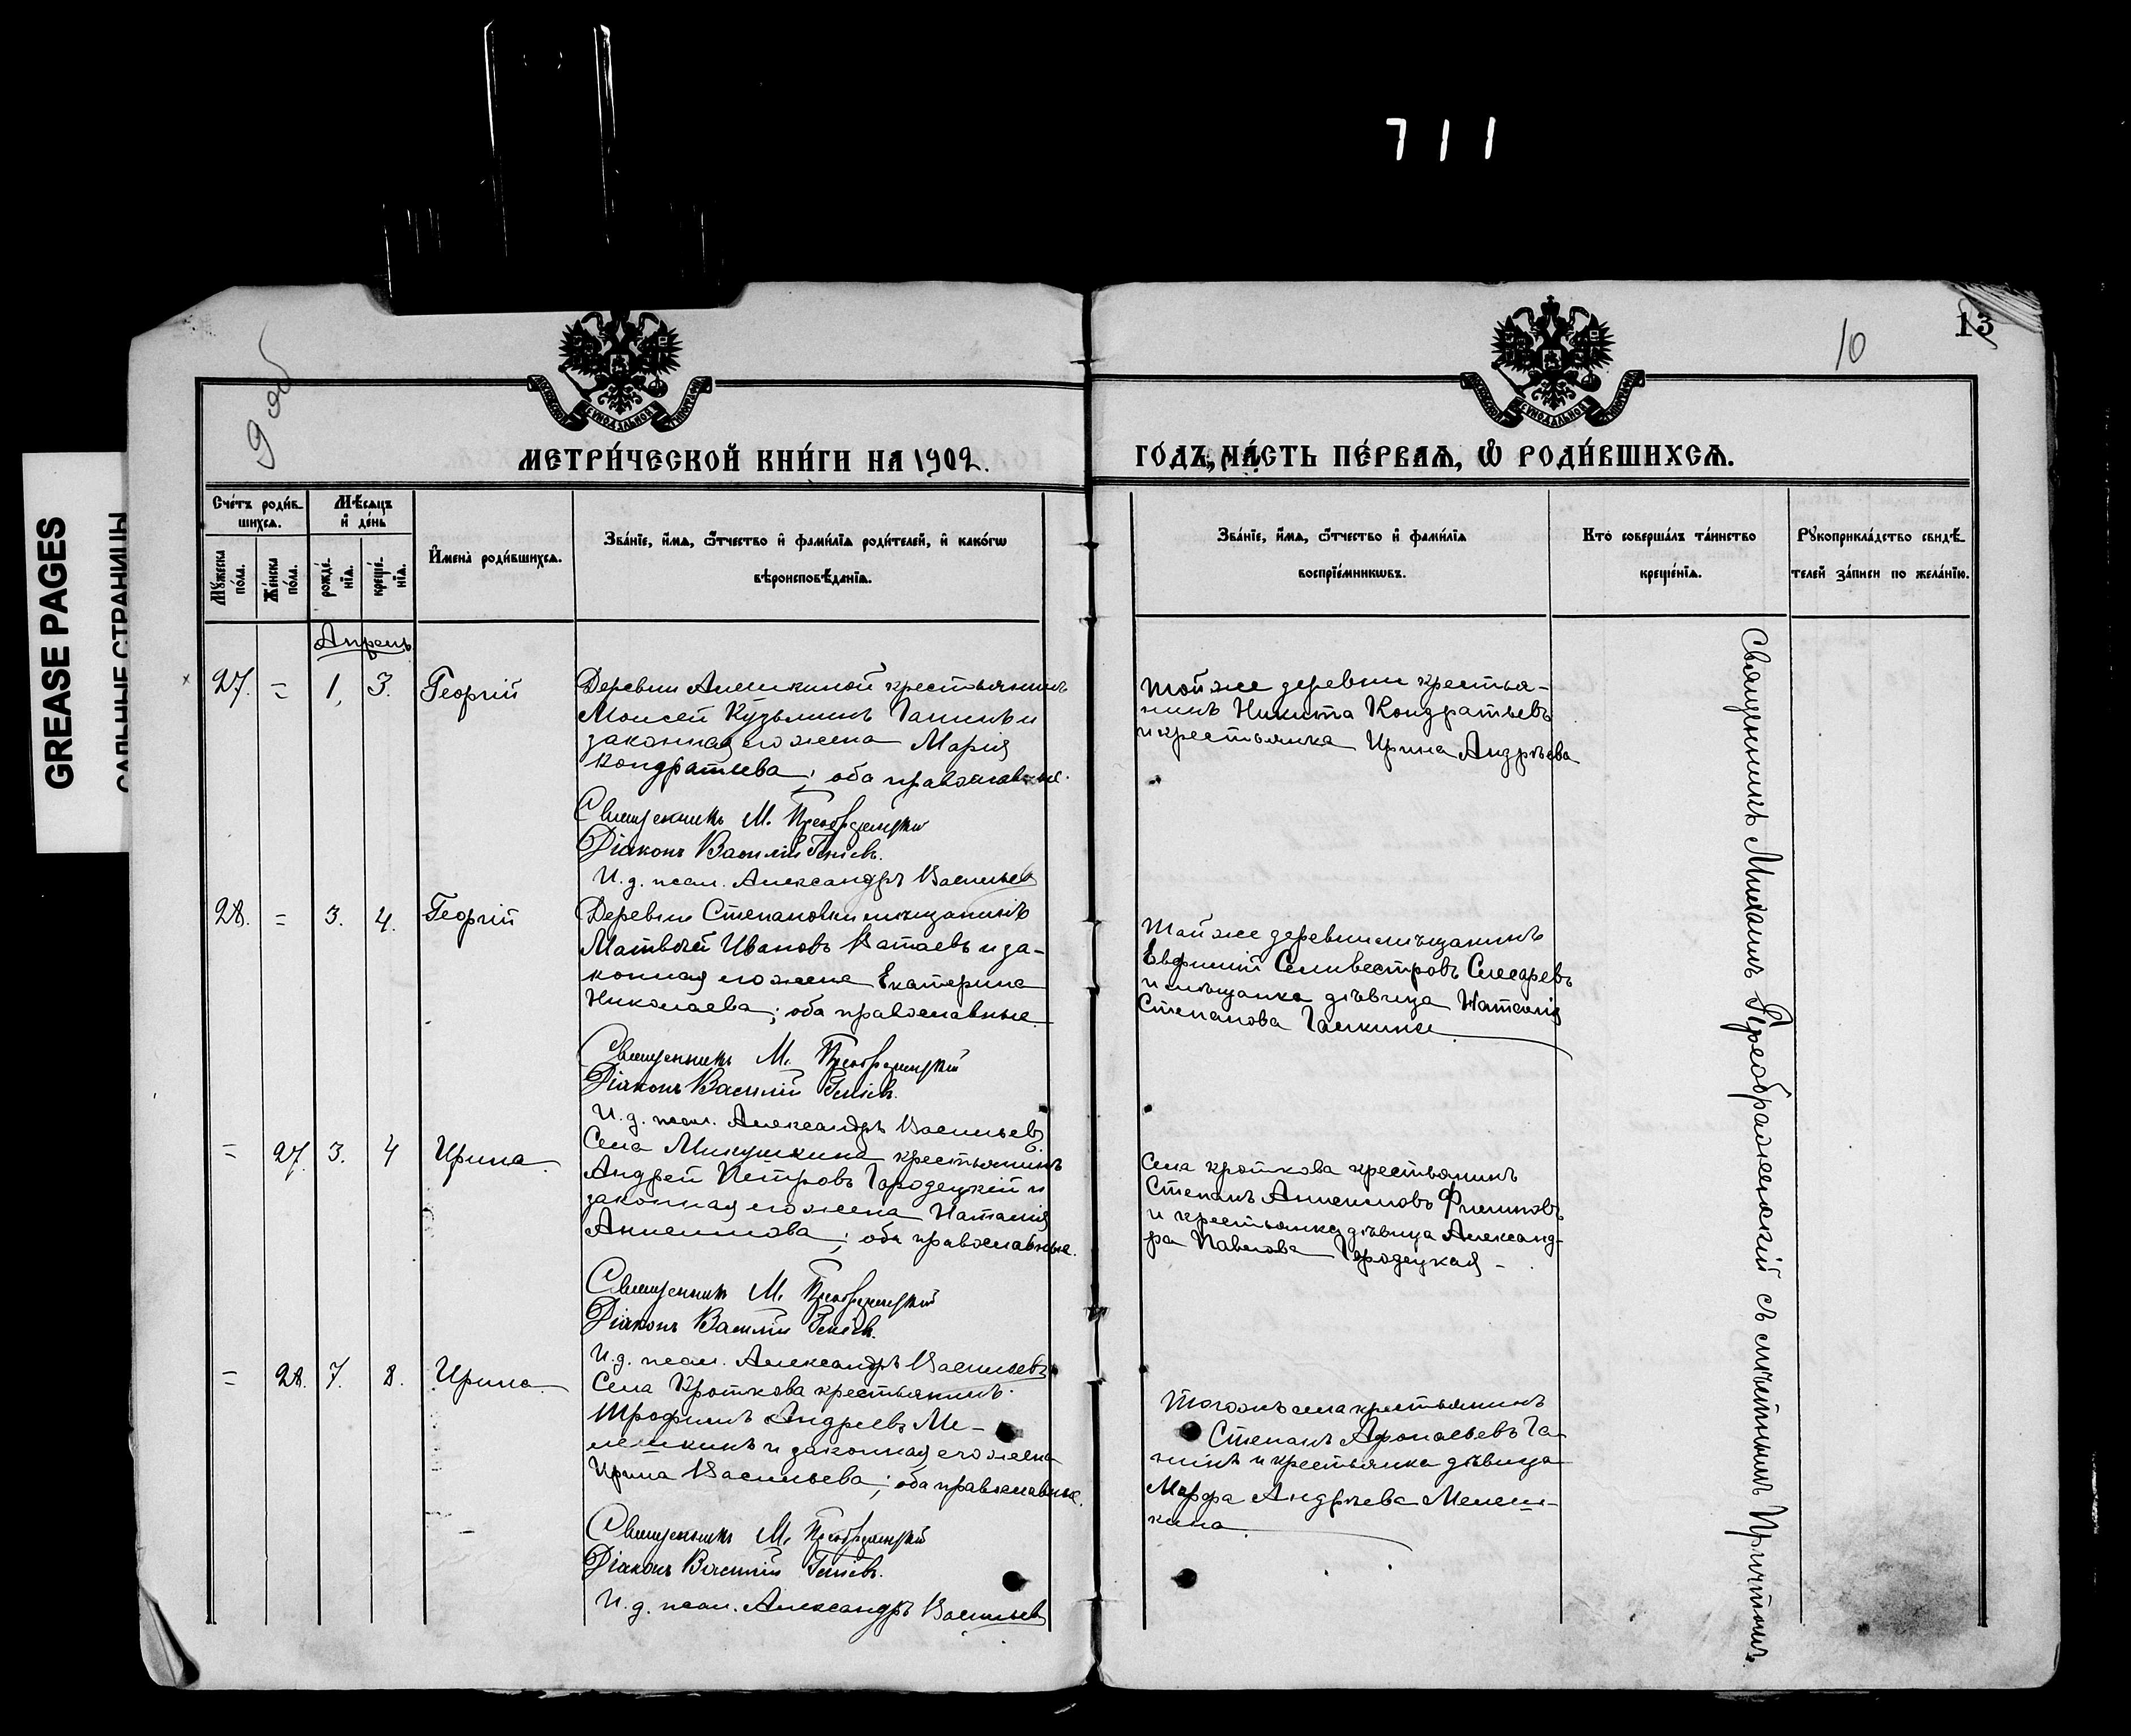 711
GREASE PAGES
САЛЬНЫЕ СТРАНИЦЫ
13
10
МЕТРИ́ЧЕСКОЙ КНИ́ГИ НА 1902.
ГО́ДЪ, ЧА́СТЬ ПЕ́РВАѦ, Ѽ РОДИ́ВШИХСѦ.
Сче́тъ роди́в-
шихсѧ.
Мꙋжеска
по́ла.
Же́нска
по́ла.
Мѣ́сѧцъ
и҆ де́нь
рожде́-
нїѧ.
креще́-
нїѧ.
И҆мена̀ роди́вшихсѧ.
Зва́нїе, и҆́мѧ, ѻ҆́тчество и҆ фами́лїѧ роди́телей, и҆ како́гѡ
вѣроисповѣ́данїѧ.
Зва́нїе, и҆́мѧ, ѻ҆́тчество и҆ фами́лїѧ
воспрїе́мникѡвъ.
Кто̀ соверша́лъ та́инство
креще́нїѧ.
Рꙋкоприкла́дство свидѣ́-
телей за́писи по жела́нїю.
Апрель
27. = 1, 3. Георгій
Деревни Алешкиной крестьянинъ
Моисей Кузьминъ Ганинъ и
законная его жена Марія
Кондратьева; оба православные.
Священникъ М. Преображенскій
Діаконъ Василій
И. д. псал. Александръ Васильевъ
Той же деревни крестья-
нинъ Никита Кондратьевъ
и крестьянка Ирина Андрѣева
28. = 3. 4. Георгій
Деревни Степановки мѣщанинъ
Матвѣй Ивановъ Ватаевъ и за-
конная его жена Екатерина
Николаева; оба православные
Священникъ М. Преображенскій
Діаконъ Василій
И. д. псал. Александръ Васильевъ
Той же деревни мѣщанинъ
Евфимій Селивестровъ Слесаревъ
и мѣщанка дѣвица Наталія
Степанова Галкина
= 27. 3. 4 Ирина.
Села Микушкина крестьянинъ
Андрей Петровъ Городецкій и
законная его жена Наталія
Анисимова; оба православные.
Священникъ М. Преображенскій
Діаконъ Василій
И. д. псал. Александръ Васильевъ
Села Кроткова крестьянинъ
Степанъ Анисимовъ Филиповъ
и крестьянка дѣвица Александ-
ра Павлова Городецкая
= 28. 7. 8. Ирина.
Села Кроткова крестьянинъ
Трофимъ Андреевъ Ме-
лешкинъ и законная его жена
Ирина Васильева; оба православные.
Священникъ М. Преображенскій
Діаконъ Василій
И. д. псал. Александръ Васильевъ
Того же села крестьянинъ
Степанъ Афонасьевъ Га-
нинъ и крестьянка дѣвица
Марфа Андрѣева Мелеш-
кина.
Священникъ Михаилъ Преображенскій съ Причтомъ.